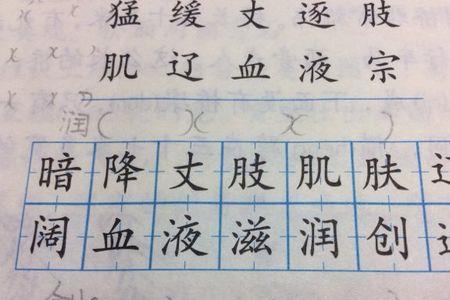 猛 缓 丈 逐 肢
肌 辽 血 液 宗
润( )( )( )
暗 降 丈 肢 肌 肤
阔 血 液 滋 润 创